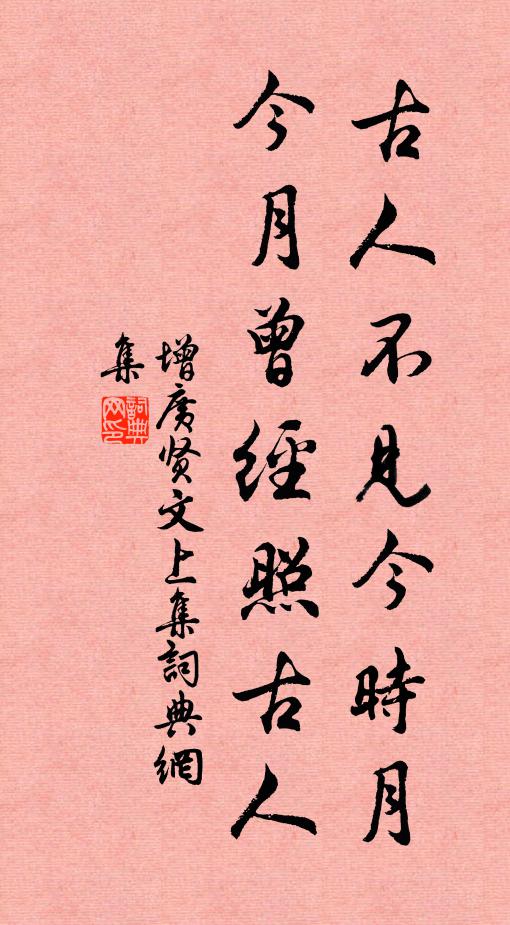 古人不見今時月
今月曾經照古人
增廣贤文上集詞典網
集
詞典
网印